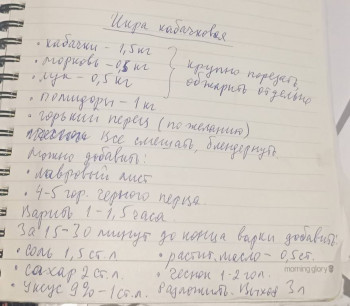 Икра кабачковая
• кабачки – 1,5 кг
• морковь – 0,5 кг
• лук – 0,5 кг
крупно порезать,
обжарить отдельно
• помидоры – 1 кг
• горький перец (по желанию)
Все смешать, блендернуть.
Можно добавить:
• лавровый лист
• 4-5 гор. черного перца.
Варить 1 – 1,5 часа.
За 15-30 минут до конца варки добавить:
• соль 1,5 ст.л. • растит. масло – 0,5 ст.
• сахар 2 ст.л. • чеснок 1-2 гол.
• уксус 9% – 1 ст.л. Разложить. Выход 3 л
morning glory